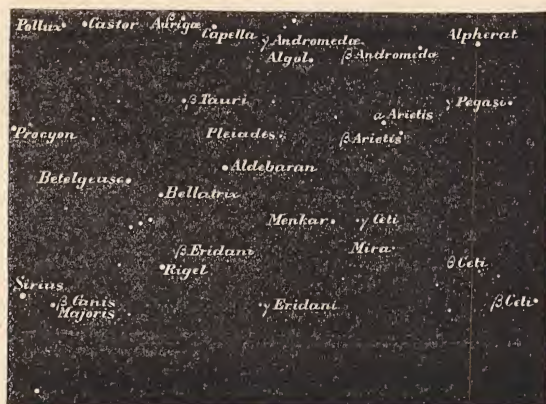 Pollux
Castor
Aurigæ
Capella
γ Andromedæ
Algol
β Andromedæ
Alpherat
β Tauri
γ Pegasi
α Arietis
Procyon
Pleiades
β Arietis
Aldebaran
Betelgeuse
Bellatrix
Menkar
γ Ceti
β Eridani
Mira
Rigel
β Ceti
Sirius
β Canis
Majoris
γ Eridani
β Ceti